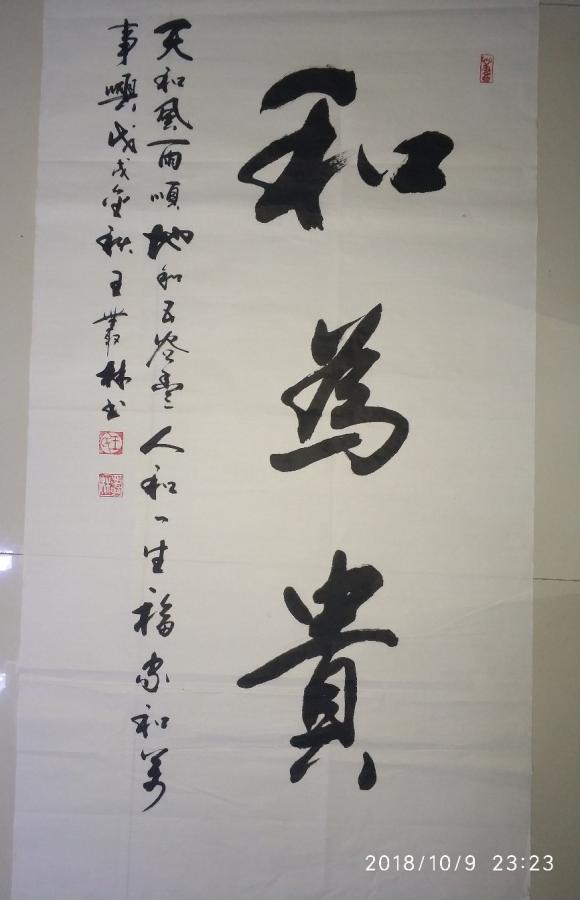 和為貴
天和風雨順地和五谷豐人和一生福家和萬
事興戊戌金秋王叢林书
2018/10/9 23:23